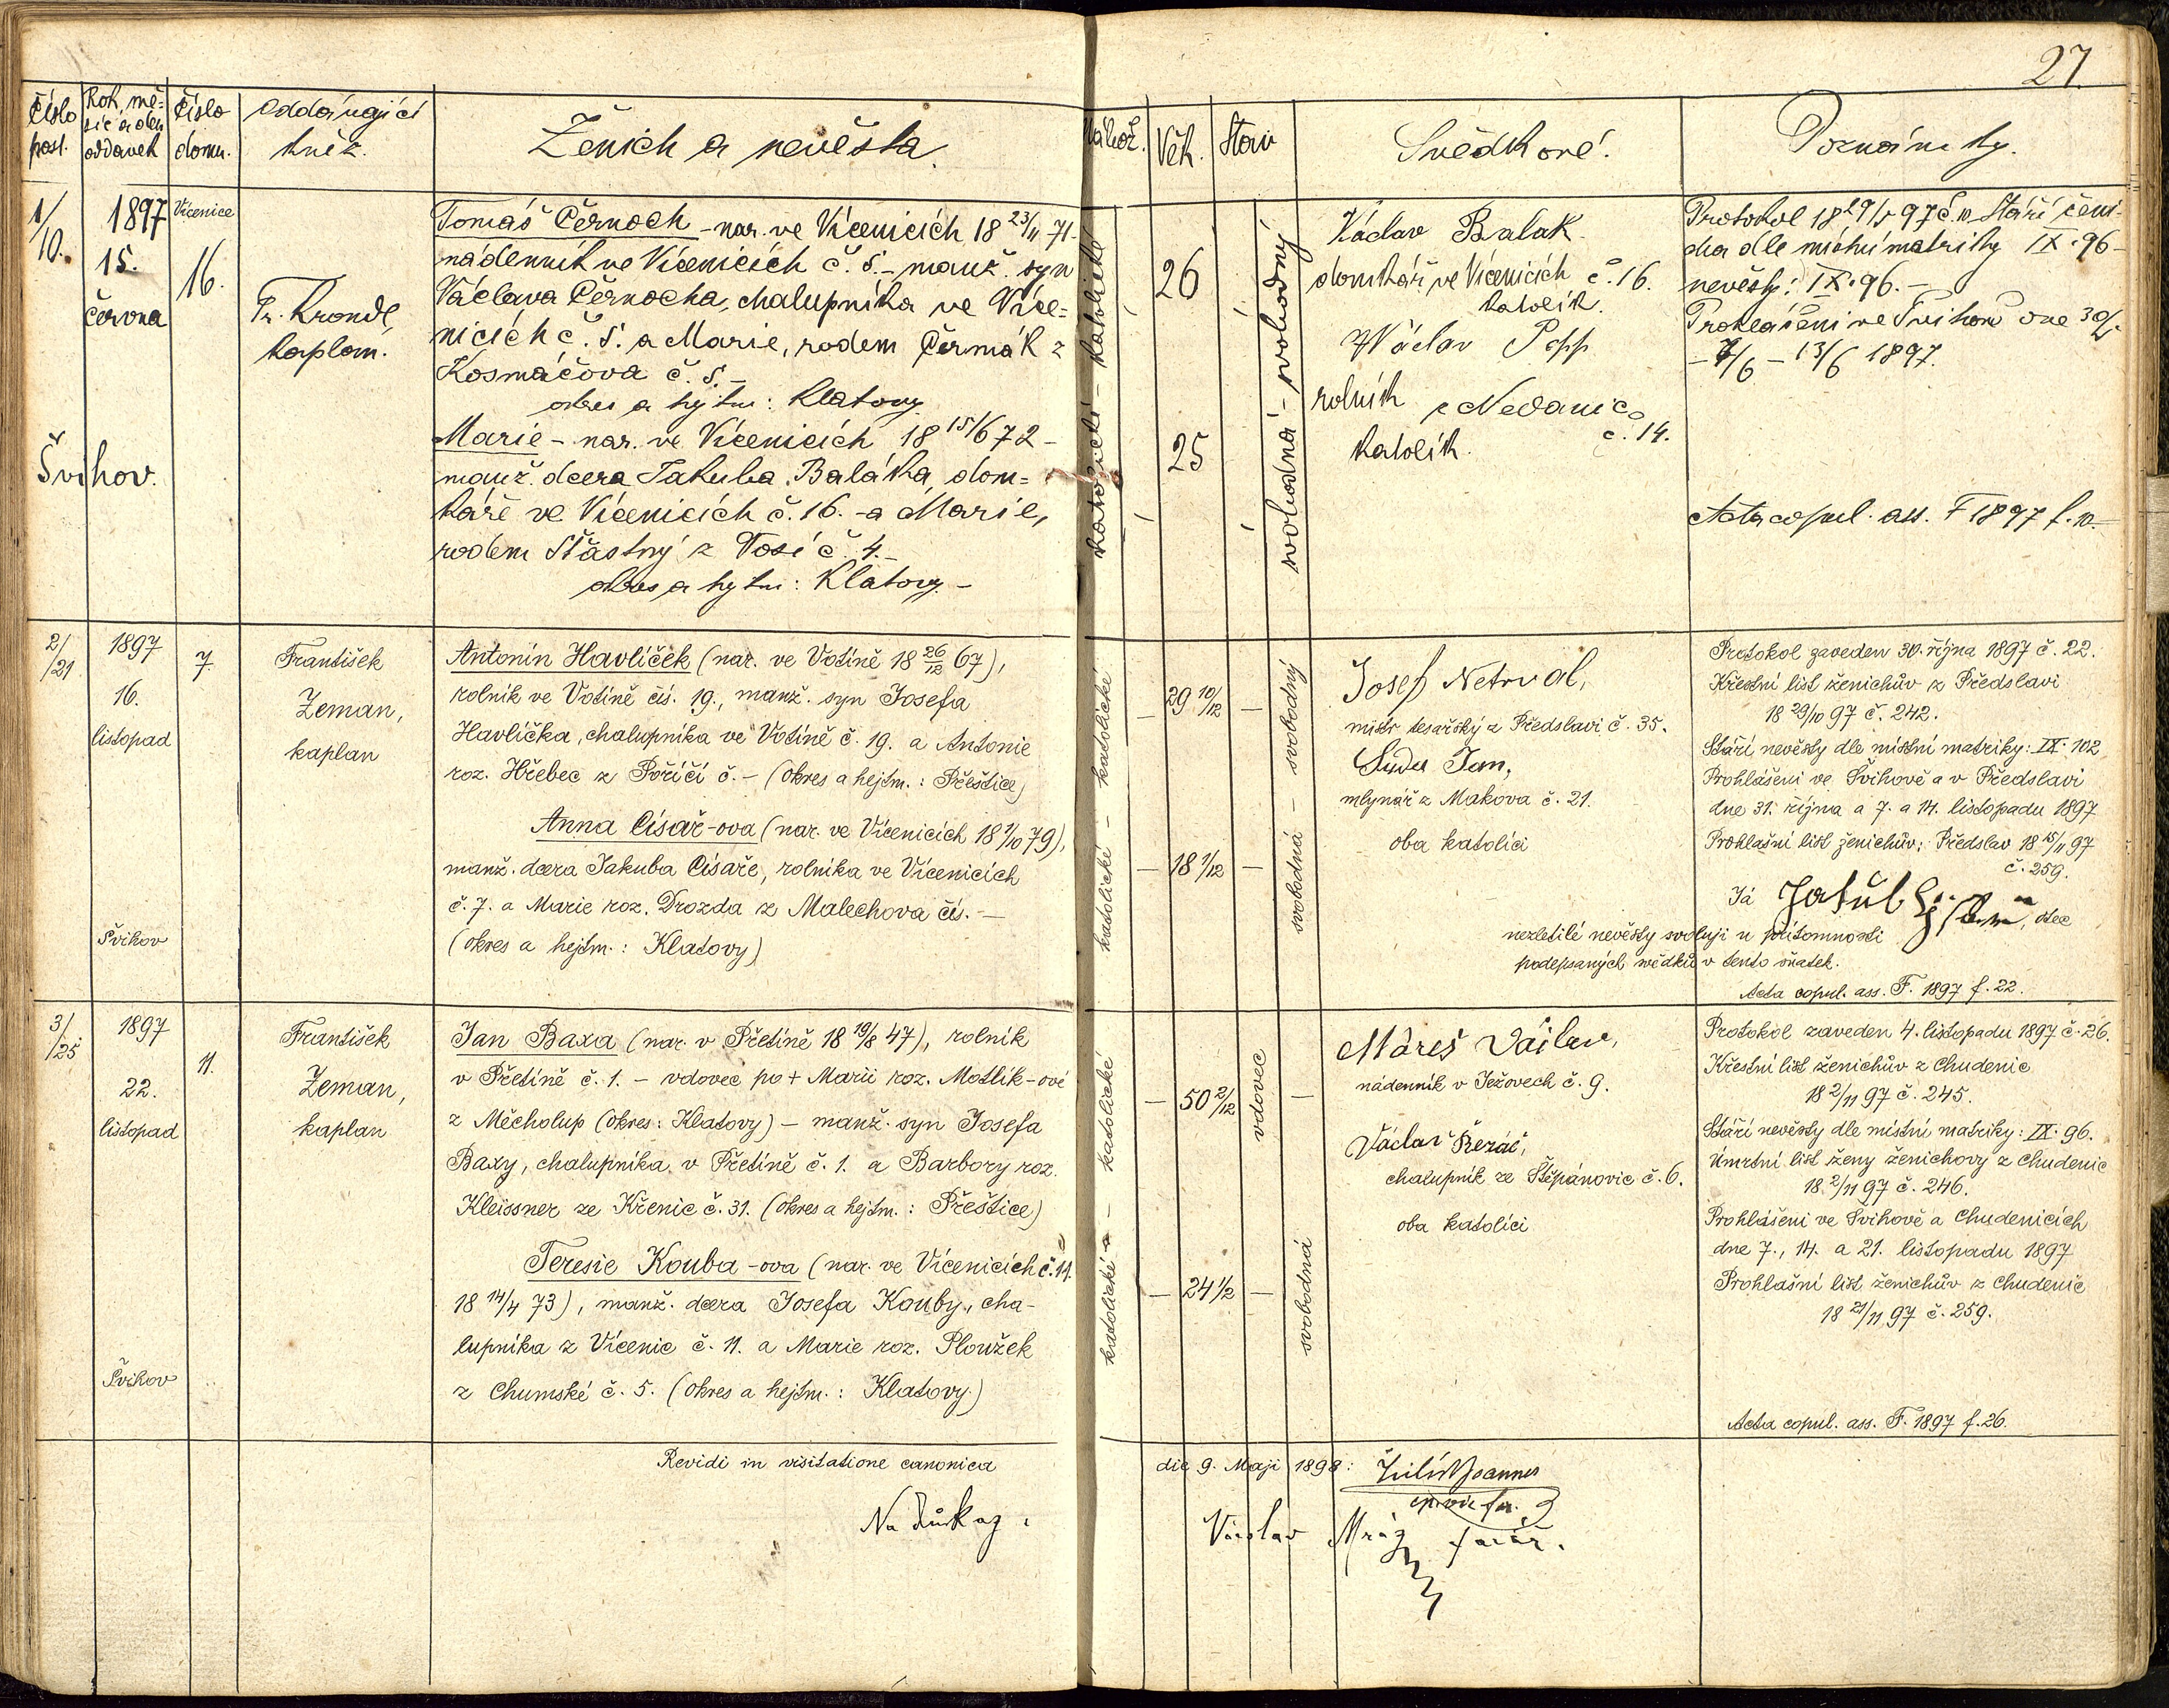 27.
Číslo
posl.
Rok, mě-
síc a den
oddavek
Číslo
domu.
Oddávající
kněz.
Ženich a nevěsta.
Nábož.
Věk.
Stav
Svědkové.
Poznámky.
1/
10.
1897
15.
června
Švihov.
Vícenice
16.
Fr. Krondl,
kaplan.
Tomáš Černoch - nar. ve Vícenicích 18 23/11 71 -
nádenník ve Vícenicích č. 5. - manž. syn
Václava Černocha, chalupníka ve Více=
nicích č. 5. a Marie, rodem Čermák z
Kosmáčova č. 5. -
okres a hejtm: Klatovy
Marie - nar. ve Vícenicích 18 15/6 72 -
manž. dcera Jakuba Baláka, dom=
káře ve Vícenicích č. 16. - a Marie,
rodem Šťastný z Vosí č. 4. -
okres a hejtm: Klatovy. -
katolické - katolické
26
25
svobodná - svobodný
Václav Balak
domkář ve Vícenicích č. 16.
katolík.
Václav Popp
rolník z Nedanic
č. 14.
katolík.
Protokol 18 29/5 97 č. 10. Stáří ženi-
cha dle místní matriky IX. 96 -
nevěsty: IX. 96. -
Prohlášeni ve Švihově dne 30/5
- 7/6 - 13/6 1897.
Acta copul. ass. F 1897 f. 10. -
2/
/21
1897
16.
listopad
Švihov
7.
František
Zeman,
kaplan
Antonín Havlíček (nar. ve Votíně 18 26/12 67),
rolník ve Votíně čís. 19., manž. syn Josefa
Havlíčka, chalupníka ve Votíně č. 19. a Antonie
roz. Hřebec z Poříčí č. - (okres a hejtm.: Přeštice)
Anna Císař-ova (nar. ve Vícenicích 18 1/10 79),
manž. dcera Jakuba Císaře, rolníka ve Vícenicích
č. 7. a Marie roz. Drozda z Malechova čís. -
(okres a hejtm.: Klatovy)
katolické - katolické
- 29 10/12 -
- 18 1/12 -
svobodná - svobodný
Josef Netrval,
mistr tesařský z Předslavi č. 35.
Suda Jan,
mlynář z Makova č. 21.
oba katolíci
Protokol zaveden 30. října 1897 č. 22.
Křestní list ženichův z Předslavi
18 29/10 97 č. 242.
Stáří nevěsty dle místní matriky: IX. 102
Prohlášeni ve Švihově a v Předslavi
dne 31. října a 7. a 14. listopadu 1897
Prohlašní list ženichův: Předslav 18 15/11 97
č. 259.
Já Jakub Císař, otec
nezletilé nevěsty svoluji u přítomnosti
podepsaných svědků v tento sňatek.
Acta copul. ass. F. 1897 f. 22.
3/
/25
1897
22.
listopad
Švihov
11.
František
Zeman,
kaplan
Jan Baxa (nar. v Přetíně 18 19/8 47), rolník
v Přetíně č. 1. - vdovec po + Marii roz. Motlík-ové
z Měcholup (okres: Klatovy) - manž. syn Josefa
Baxy, chalupníka v Přetíně č. 1. a Barbory roz.
Kleissner ze Křenic č. 31. (okres a hejtm.: Přeštice)
Teresie Kouba-ova (nar. ve Vícenicích č. 11.
18 14/4 73), manž. dcera Josefa Kouby, cha-
lupníka z Vícenic č. 11. a Marie roz. Ploužek
z Chumské č. 5. (okres a hejtm.: Klatovy.)
katolické - katolické
- 50 2/12 -
- 24 1/2 -
vdovec
svobodná
Mareš Václav,
nádenník v Ježovech č. 9.
Václav Řezáč,
chalupník ze Štěpánovic č. 6.
oba katolíci
Protokol zaveden 4. listopadu 1897 č. 26.
Křestní list ženichův z Chudenic
18 2/11 97 č. 245.
Stáří nevěsty dle místní matriky: IX. 96.
Úmrtní list ženy ženichovy z Chudenic
18 2/11 97 č. 246.
Prohlášeni ve Švihově a Chudenicích
dne 7., 14. a 21. listopadu 1897
Prohlašní list ženichův z Chudenic
18 21/11 97 č. 259.
Acta copul. ass. F. 1897 f. 26.
Revidi in visitatione canonica die 9. Maji 1898:
Joannes
Na důkaz: Václav Mráz farář.